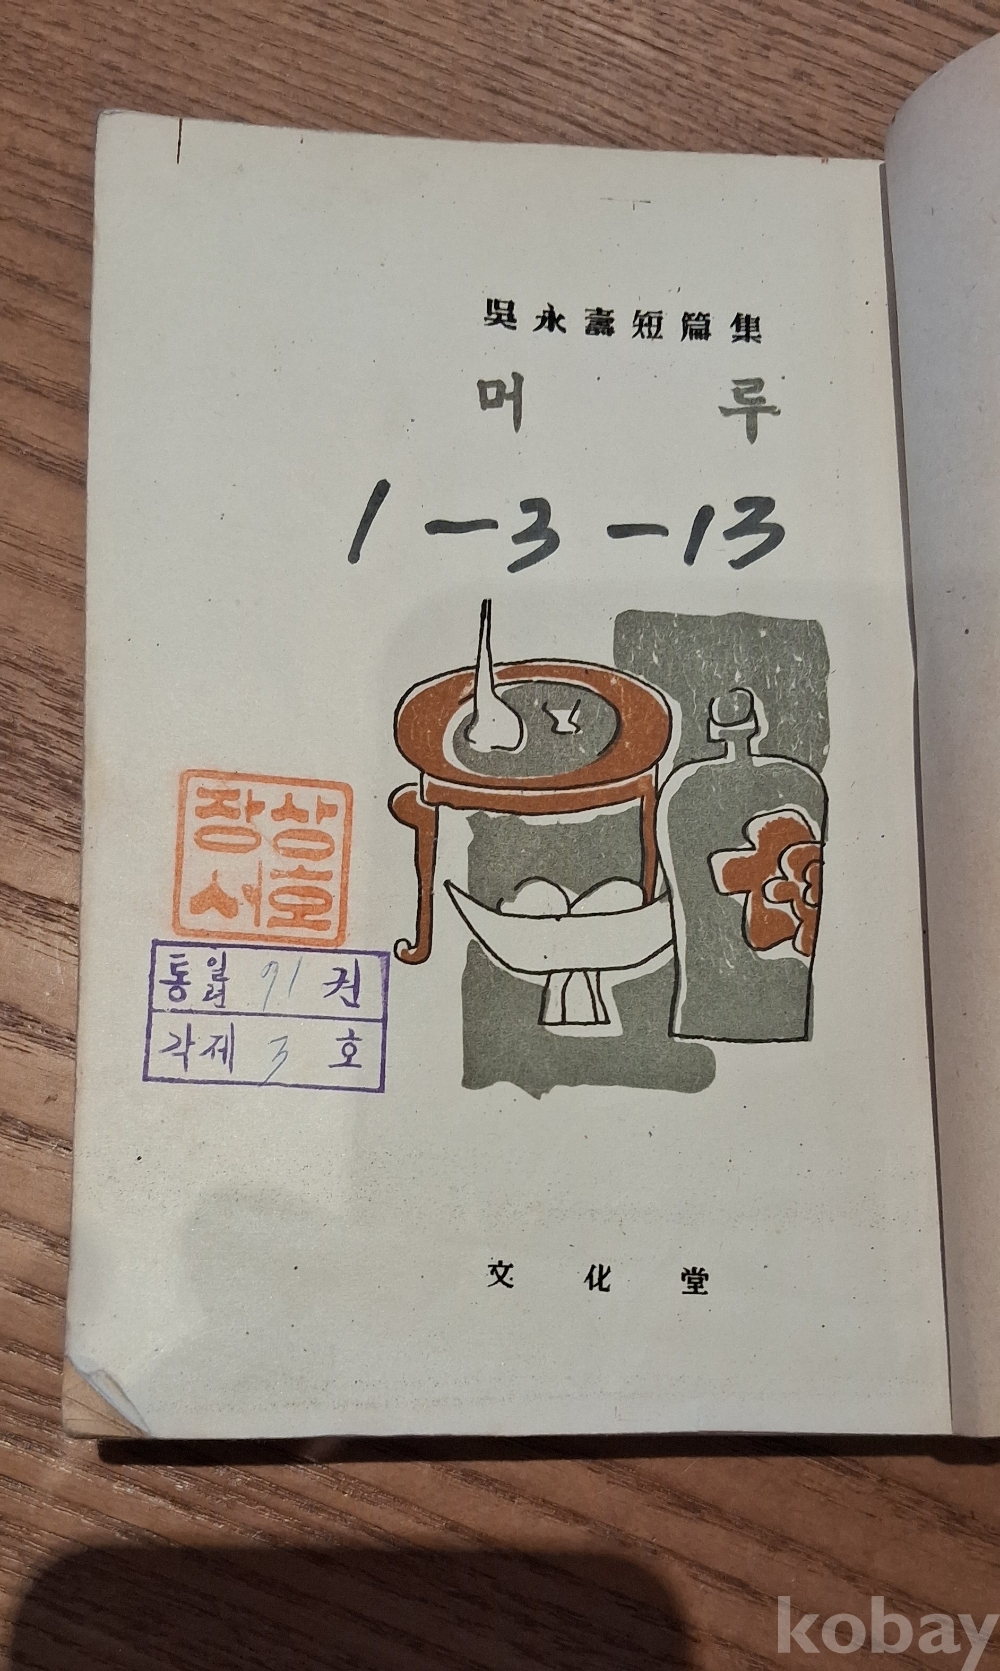 吳永壽短篇集
머루
1-3-13
장상
서호
통일련 91 권
각제 3 호
文化堂
kobay